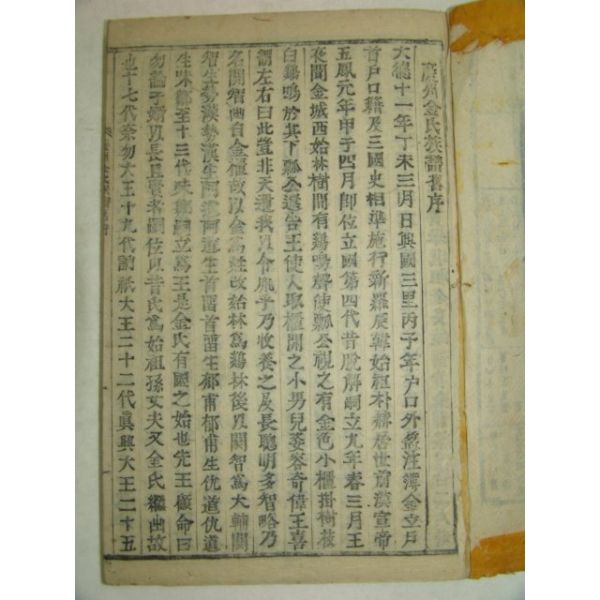 慶州金氏族譜舊序
大德十一年丁未三月日興國三里丙子年户口外盤注簿金立戶
首戶口籍及三國史相準施行新羅辰韓始祖朴赫居世前漢宣帝
五鳳元年甲子四月卽位立國第四代昔脫解嗣立九年春三月王
夜聞金城西始林樹間有鷄鳴聲使瓢公視之有金色小櫃掛樹枝
白鷄鳴於其下瓢公還告王使人取櫃開之小男兒姿容奇偉王喜
謂左右曰此豈非天遺我以令胤乎乃收養之及長聰明多智略乃
名閼智曲自金櫃故以金爲姓改始林爲鷄林後以閼智爲大輔閼
智生勢漢勢漢生阿道阿道生首留首留生郁甫郁甫生仇道仇道
生味鄒至十三代味鄒嗣立爲王是金氏有國之始也先王顧命曰
勿論子婿以長且賢者嗣位以昔氏爲始祖孫丈夫又金氏繼出故
也十七代奈勿大王十九代訥祇大王二十二代眞興大王二十五